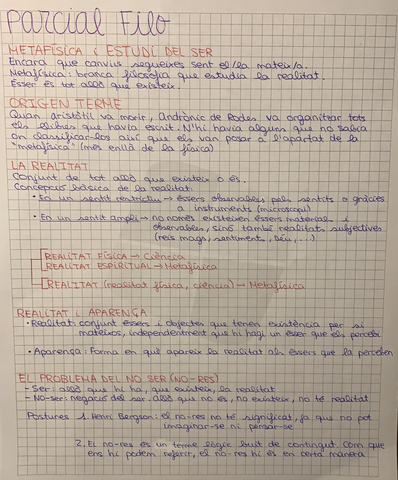 PARCIAL FILO
METAFÍSICA i ESTUDI DEL SER
Encara que canviis segueixes sent el/la mateix/a.
Metafísica: branca filosofia que estudia la realitat.
Ésser és tot allò que existeix.
ORIGEN TERME
Quan Aristòtil va morir, Andrònic de Rodes va organitzar tots
els llibres que havia escrit. N'hi havia alguns que no sabia
on classificar-los així que els van posar a l'apartat de la
"metafísica" (més enllà de la física)
LA REALITAT
Conjunt de tot allò que existeix o és.
Concepció bàsica de la realitat:
• En un sentit restrictiu → éssers observables pels sentits o gràcies
a instruments (microscopi)
• En un sentit ampli → no només existeixen éssers materials i
observables, sinó també realitats subjectives
(reis mags, sentiments, Déu, ...)
REALITAT FÍSICA → Ciència
REALITAT ESPIRITUAL → Metafísica
REALITAT (realitat física, ciència) → Metafísica
REALITAT i APARENÇA
• Realitat: conjunt éssers i objectes que tenen existència per si
mateixos, independentment que hi hagi un ésser que els percebi
• Aparença: Forma en què apareix la realitat als éssers que la perceben
EL PROBLEMA DEL NO SER (NO-RES)
- Ser: allò que hi ha, que existeix, la realitat
- No-ser: negació del ser. allò que no és, no existeix, no té realitat
Postures 1. Henri Bergson: el no-res no té significat, ja que no pot
imaginar-se ni pensar-se
2. El no-res és un terme lògic buit de contingut. Com que
ens hi podem referir, el no-res hi és en certa manera